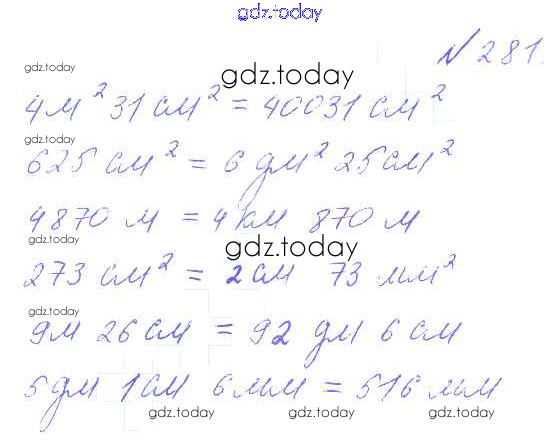 gdz.today
№ 281.
gdz.today
gdz.today
4м² 31 см² = 40031 см²
gdz.today
625 см² = 6 дм² 25 см²
4870 м = 4 км 870 м
gdz.today
gdz.today
273 см² = 2 см 73 мм²
gdz.today
9м 26 см = 92 дм 6 см
5 дм 1 см 6 мм = 516 мм
gdz.today
gdz.today
gdz.today